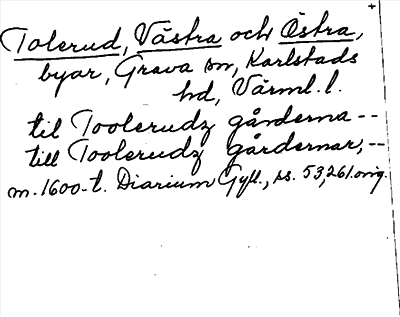 Tolerud, Västra och Östra,
byar, Grava sn, Karlstads
hd, Värml. l.
til Toolerudz gårderna --
till Toolerudz gårdernar, --
m. 1600-t. Diarium Gyll., ss. 53, 261. orig.